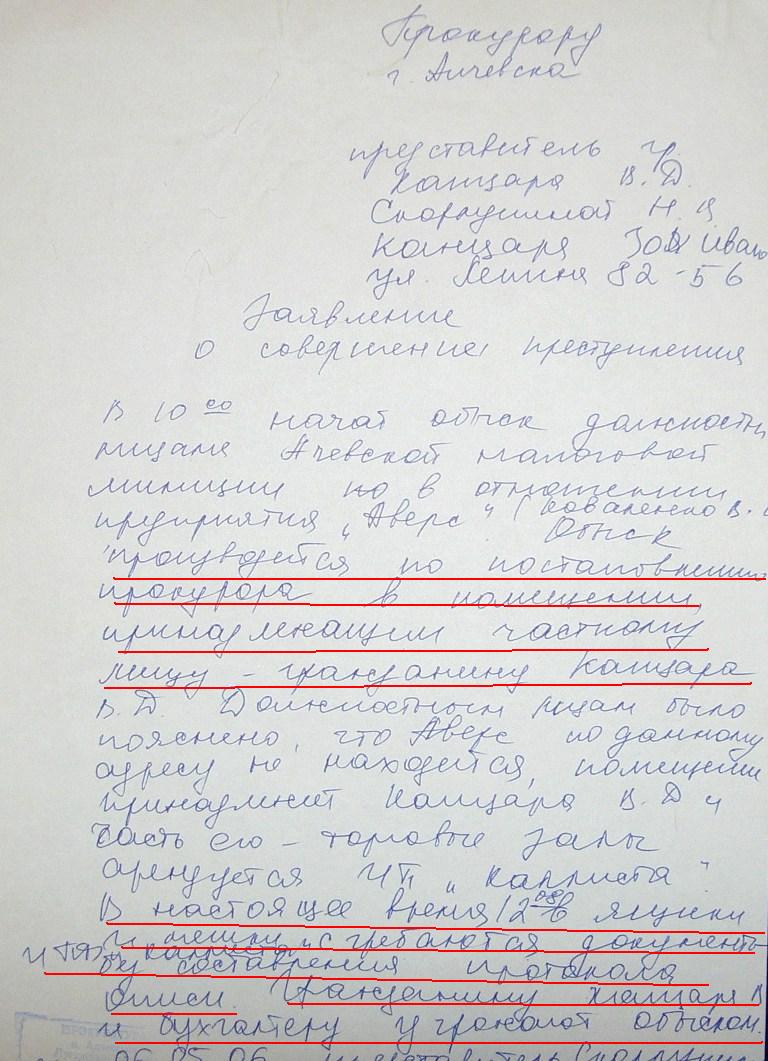 Прокурору
г. Алчевска
представитель гр.
Канцара В. Д.
Н.
Канцара Иван
ул. Ленина 82-56
Заявление
о совершении преступления
В 10 00 начат обыск должностн
лицами Алчевской налоговой
милиции но в отношении
предприятия „Аверс" (Коваленко В.
Обыск
производится по постановлению
прокурора в помещении,
принадлежащим частному
лицу - гражданину Канцара
В. Д. Должностным лицам было
пояснено, что Аверс по данному
адресу не находится, помещение
принадлежит Канцара В. Д и
часть его - торговые залы
арендуется ЧП „Каллиста"
В настоящее время 12 в ящики
и мешки сгребаются документы
ЧП „Каллиста"
без составления протокола
описи. Гражданину Канцара В
и бухгалтеру угрожают обыском.
06.05.06 представитель